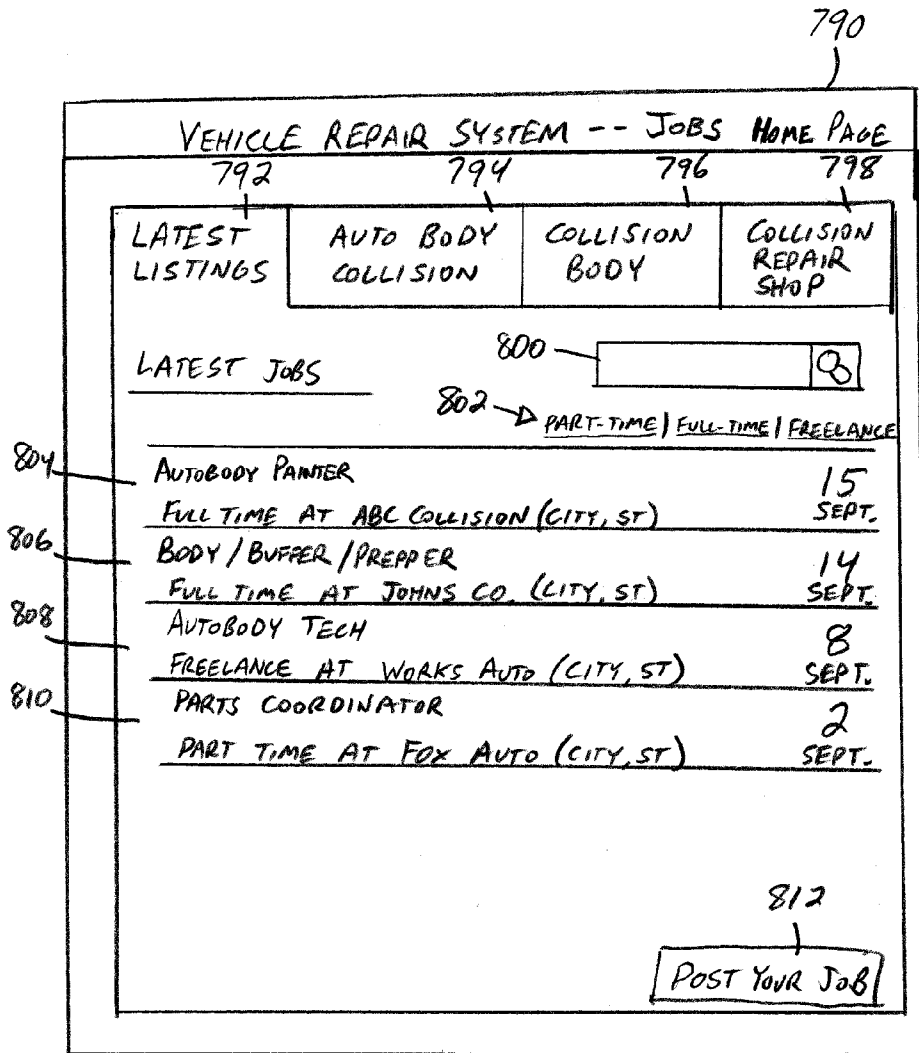 790
VEHICLE REPAIR SYSTEM -- JOBS HOME PAGE
792 794 796 798
LATEST LISTINGS
AUTO BODY COLLISION
COLLISION BODY
COLLISION REPAIR SHOP
LATEST JOBS
800
802
PART-TIME | FULL-TIME | FREELANCE
804
AUTOBODY PAINTER 15
FULL TIME AT ABC COLLISION (CITY, ST) SEPT.
806
BODY / BUFFER / PREPPER 14
FULL TIME AT JOHNS CO. (CITY, ST) SEPT.
808
AUTOBODY TECH 8
FREELANCE AT WORKS AUTO (CITY, ST) SEPT.
810
PARTS COORDINATOR 2
PART TIME AT FOX AUTO (CITY, ST) SEPT.
812
POST YOUR JOB